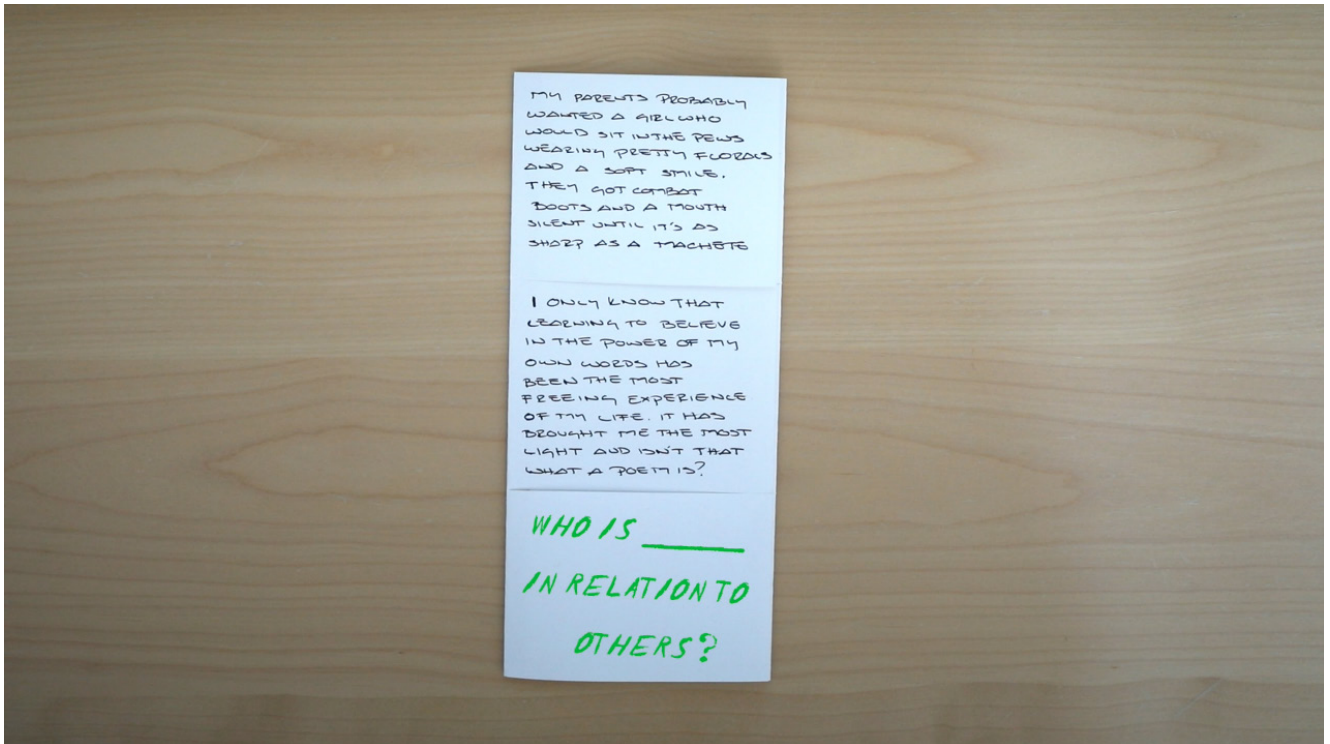 MY PARENTS PROBABLY
WANTED A GIRL WHO
WOULD SIT IN THE PEWS
WEARING PRETTY FLORALS
AND A SOFT SMILE.
THEY GOT COMBAT
BOOTS AND A MOUTH
SILENT UNTIL IT'S AS
SHARP AS A MACHETE
I ONLY KNOW THAT
LEARNING TO BELIEVE
IN THE POWER OF MY
OWN WORDS HAS
BEEN THE MOST
FREEING EXPERIENCE
OF MY LIFE. IT HAS
BROUGHT ME THE MOST
LIGHT AND ISN'T THAT
WHAT A POEM IS?
WHO IS ______
IN RELATION TO
OTHERS?